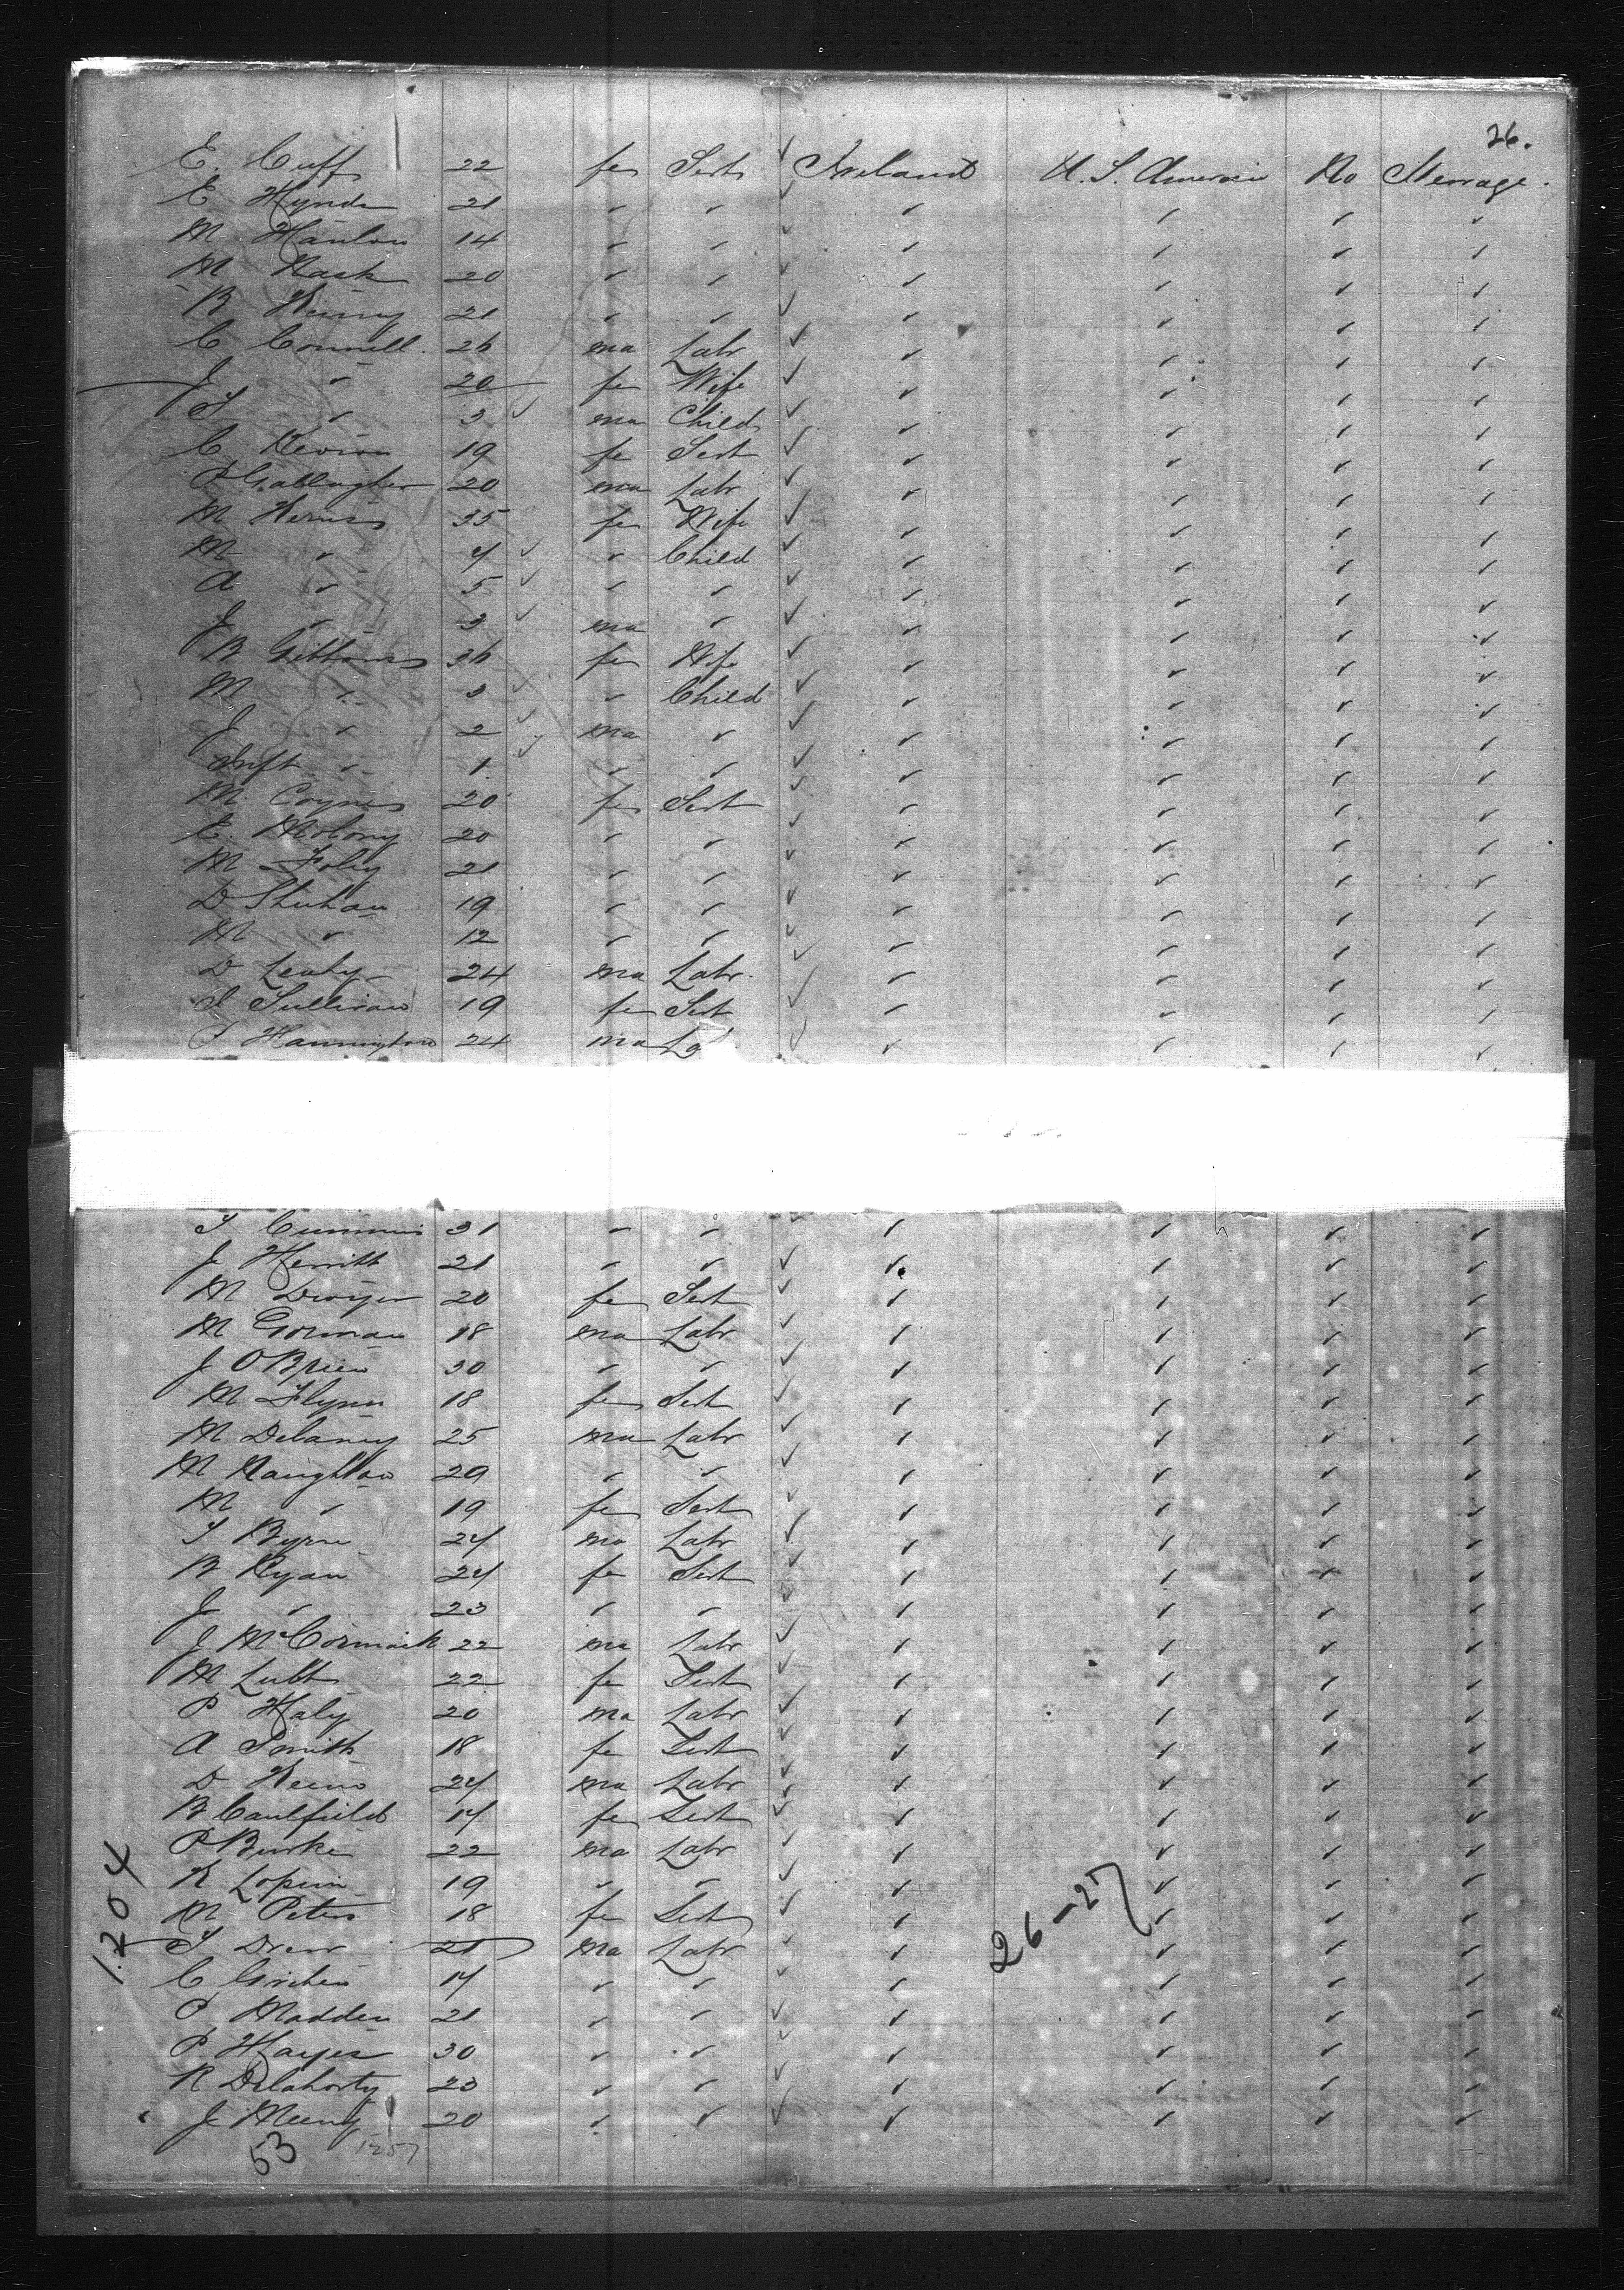 26.
E. Cuff 22 fe Sert ✓ Ireland U.S. America No Steerage.
E Hynds 21 " " ✓ " " " "
M Hanlon 14 " " ✓ " " " "
M Nash 20 " " ✓ " " " "
B Kenny 21 " " ✓ " " " "
C Connell. 26 ma Labr ✓ " " " "
J " 20 fe Wife ✓ " " " "
T " 3 ✓ ma Child ✓ " " " "
C 19 fe Sert ✓ " " " "
P Gallagher 20 ma Labr ✓ " " " "
M 35 fe Wife ✓ " " " "
M " 4 ✓ " Child ✓ " " " "
A " 5 ✓ " " ✓ " " " "
J " 3 ✓ ma " ✓ " " " "
B Gibbons 36 fe Wife ✓ " " " "
M " 3 ✓ " Child ✓ " " " "
J " 2 ✓ ma " ✓ " " " "
Inft " 1 ✓ " " ✓ " " " "
M. Coynes 20 fe Sert ✓ " " " "
E. Molony 20 " " ✓ " " " "
M Foley 21 " " ✓ " " " "
D Shehan 19 " " ✓ " " " "
M " 12 " " ✓ " " " "
D Leahy 24 ma Labr. ✓ " " " "
S Sullivan 19 fe Sert ✓ " " " "
P Hannington 24 ma La ✓ " " " "
T Cummins 31 " " ✓ " " " "
J Merritt 21 " " ✓ " " " "
M Dwyer 20 fe Sert ✓ " " " "
M Gorman 18 ma Labr ✓ " " " "
J OBrien 30 " " ✓ " " " "
M Flynn 18 fe Sert ✓ " " " "
M Delaney 25 ma Labr ✓ " " " "
M Naughton 29 " " ✓ " " " "
M " 19 fe Sert ✓ " " " "
T Byrne 24 ma Labr ✓ " " " "
B Ryan 24 fe Sert ✓ " " " "
J " 23 " " ✓ " " " "
J McCormack 22 ma Labr ✓ " " " "
M 22 fe Sert ✓ " " " "
P Haly 20 ma Labr ✓ " " " "
A Smith 18 fe Sert ✓ " " " "
D 24 ma Labr ✓ " " " "
B Caulfield 17 fe Sert ✓ " " " "
P Burke 22 ma Labr ✓ " " " "
R 19 " " ✓ " " " "
M Peters 18 fe Sert ✓ " " " "
T Drew 21 ma Labr ✓ " " " "
C 17 " " ✓ " " " "
P Madden 21 " " ✓ " " " "
P Hayes 30 " " ✓ " " " "
R Delahorty 23 " " ✓ " " " "
J Meeny 20 " " ✓ " " " "
53 1257
1204
26-27